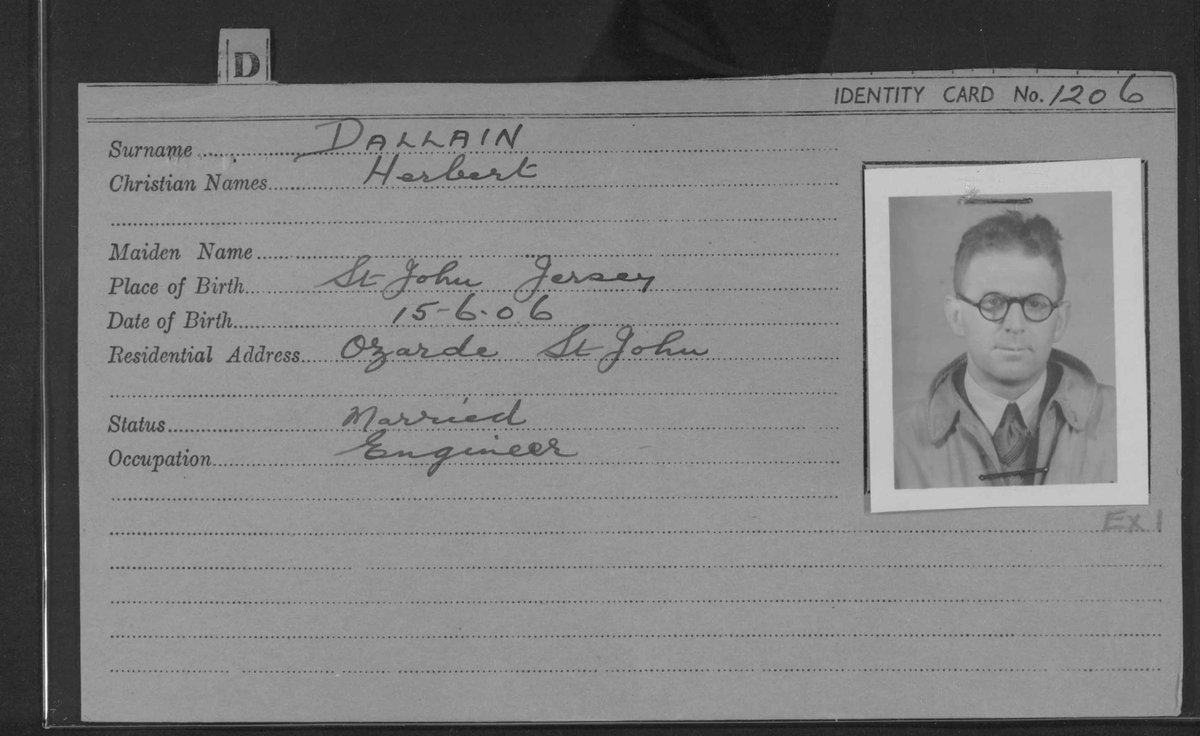 D
IDENTITY CARD No. 1206
Surname DALLAIN
Christian Names Herbert
Maiden Name
Place of Birth St John Jersey
Date of Birth 15-6-06
Residential Address Ozarde St John
Status Married
Occupation Engineer
Ex 1